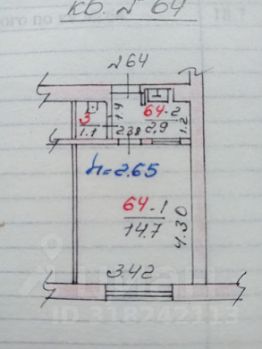 кв. № 64
№ 64
3
1.1
1.4
64-2
2.9
1.2
2.38
h=2.65
64-1
14.7
4.30
3.42